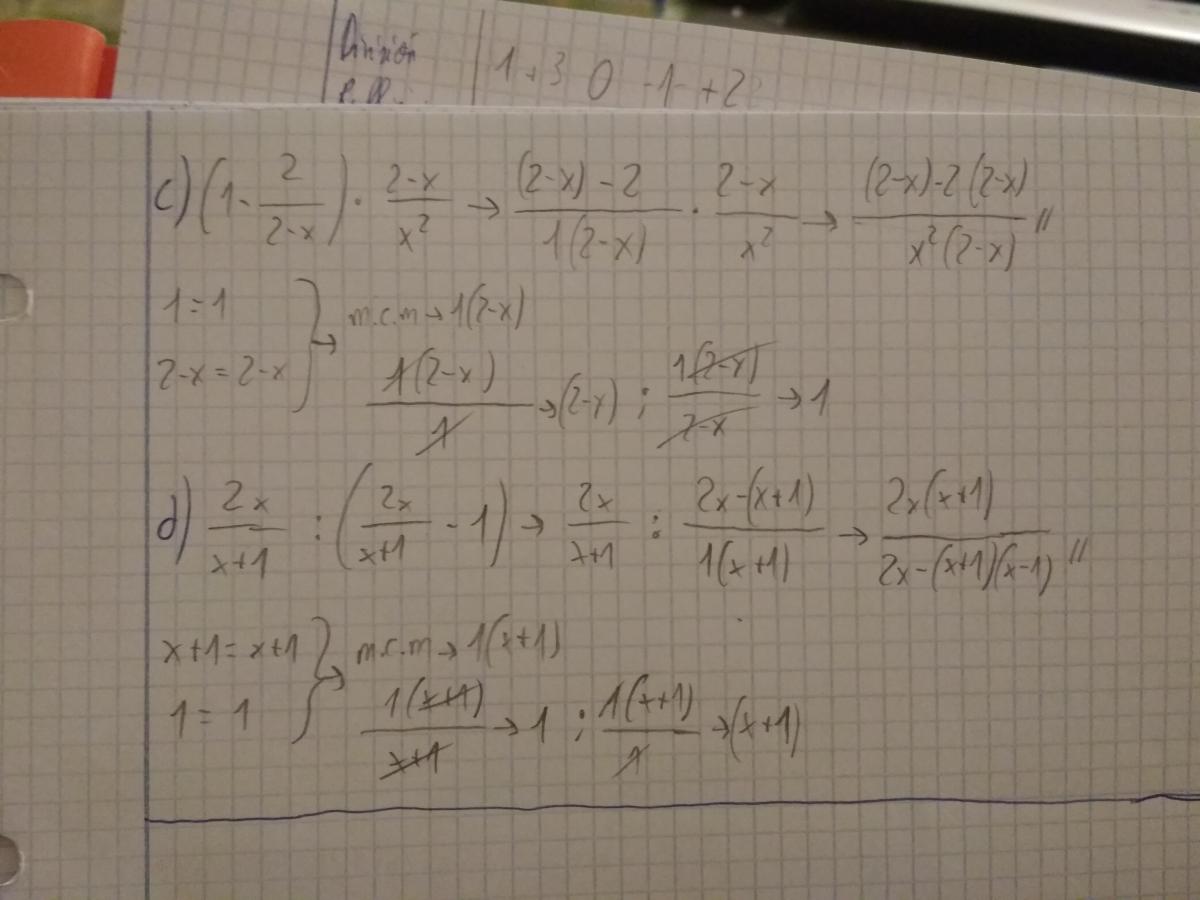 División
1 + 3 0 -1 +2
c) (1 - 2/(2-x)) · (2-x)/x² → ((2-x) - 2)/(1(2-x)) · (2-x)/x² → ((2-x)-2(2-x))/(x²(2-x)) //
1 = 1
2-x = 2-x
} → m.c.m → 1(2-x)
1(2-x)/1 → (2-x) ; 1(2-x)/(2-x) → 1
d) 2x/(x+1) : (2x/(x+1) - 1) → 2x/(x+1) : (2x-(x+1))/(1(x+1)) → 2x(x+1)/(2x-(x+1)(x-1)) //
x+1 = x+1
1 = 1
} → m.c.m → 1(x+1)
1(x+1)/(x+1) → 1 ; 1(x+1)/1 → (x+1)